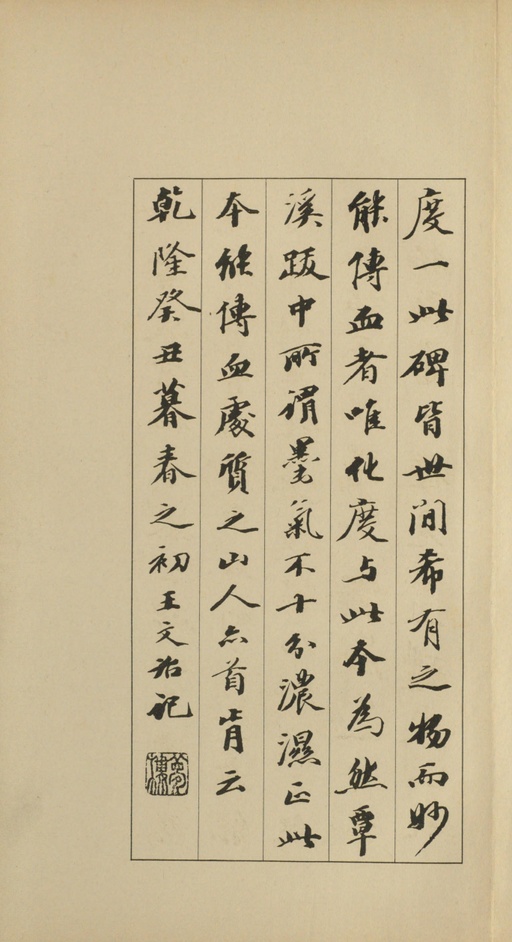 度一此碑皆世间希有之物而妙
能傳血者唯化度与此本為然覃
溪跋中所謂墨氣不十分濃濕正此
本能傳血處質之山人亦首肯云
乾隆癸丑暮春之初王文治記
夢樓